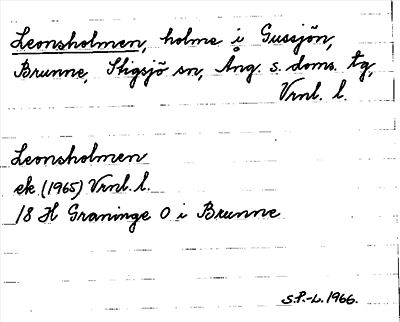 Leonsholmen, holme i Gussjön,
Brunne, Stigsjö sn, Ång. s. doms. tg,
Vrnl. l.
Leonsholmen
ek. (1965) Vrnl. l.
18 H Graninge 0 i Brunne
S.P.-L. 1966.